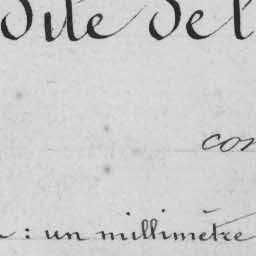 dite de l'
con
: un millimètre